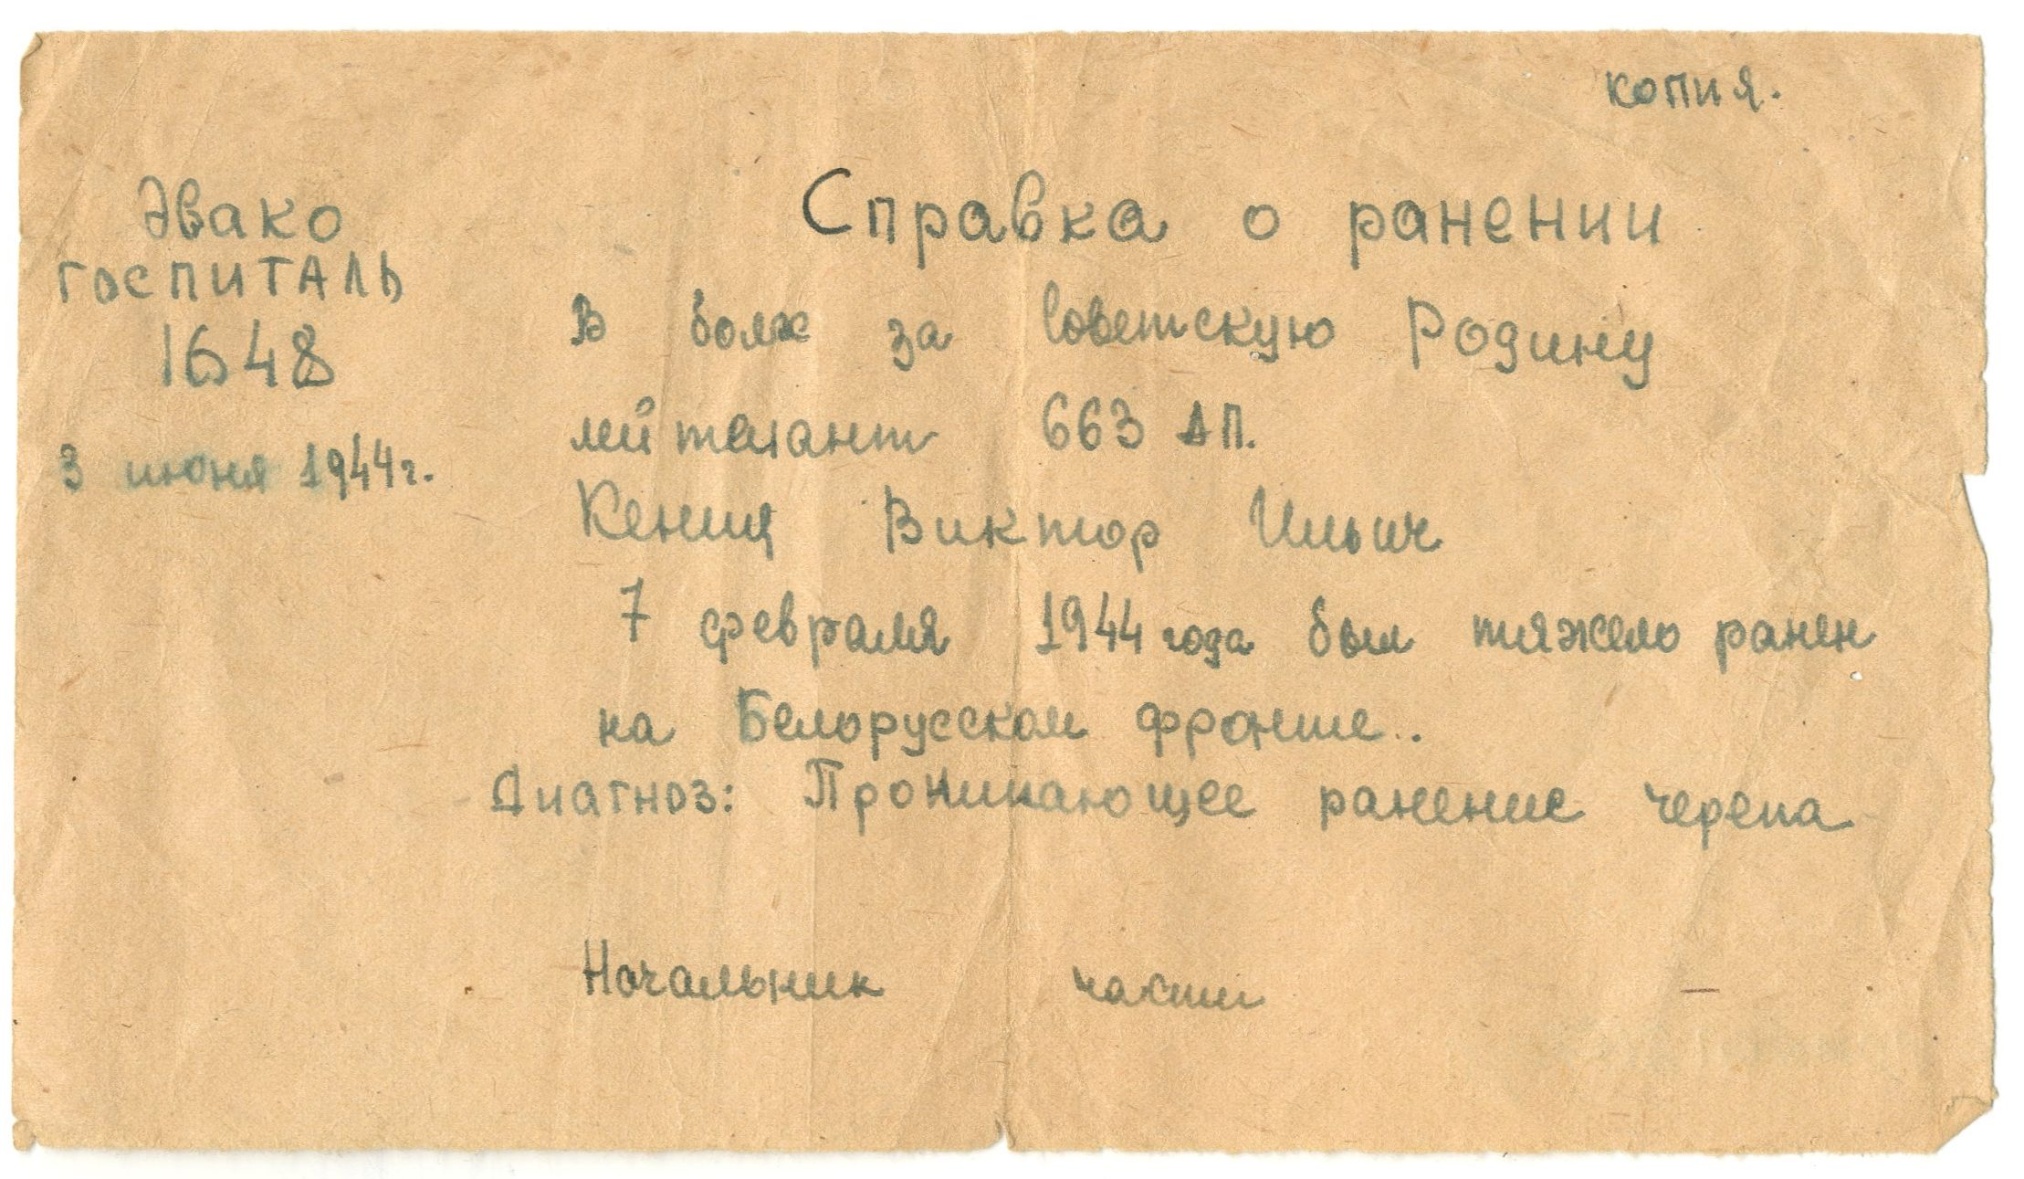 копия.
Эвако
госпиталь
1648
3 июня 1944г.
Справка о ранении
В боях за Советскую Родину
лейтенант 663 АП.
Кениц Виктор Ильич
7 февраля 1944 года был тяжело ранен
на Белорусском фронте..
Диагноз: Проникающее ранение черепа
Начальник части